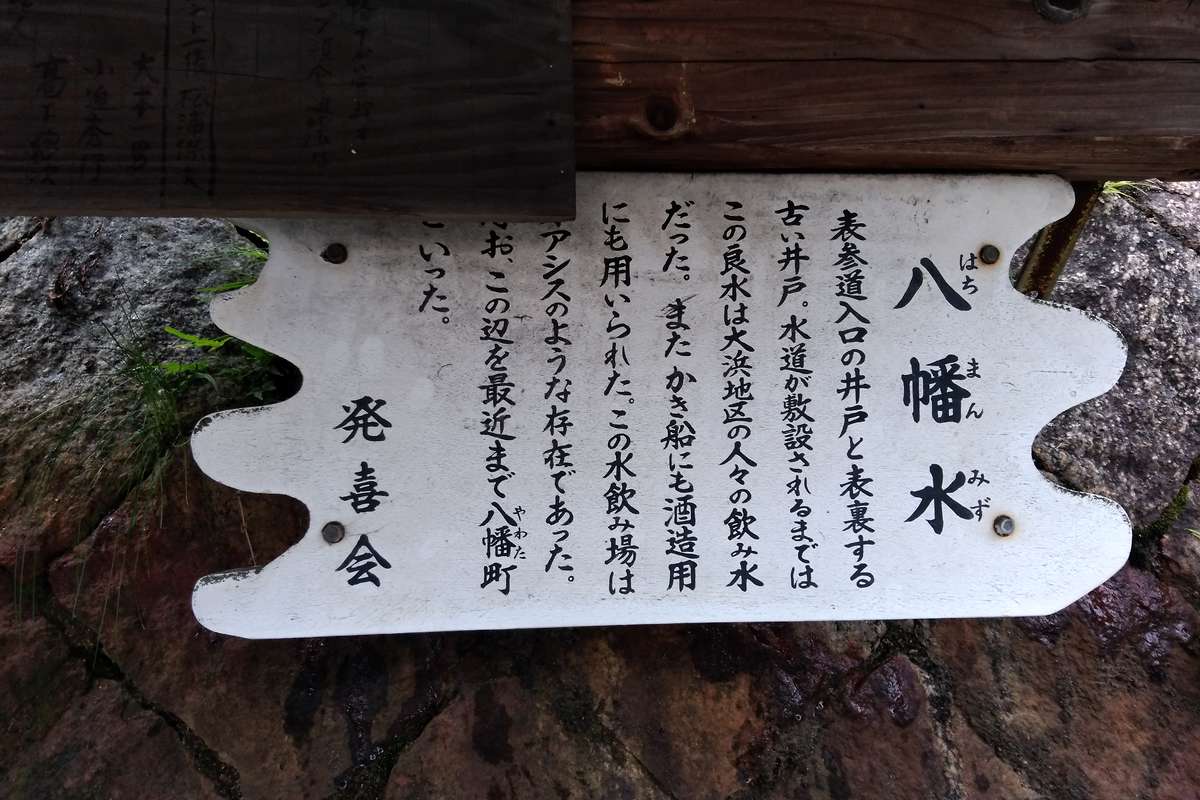 八幡水
はちまんみず
表参道入口の井戸と表裏する
古い井戸。水道が敷設されるまでは
この良水は大浜地区の人々の飲み水
だった。またかき船にも酒造用
にも用いられた。この水飲み場は
アシスのような存在であった。
お、この辺を最近まで八幡町
やわた
いった。
発喜会